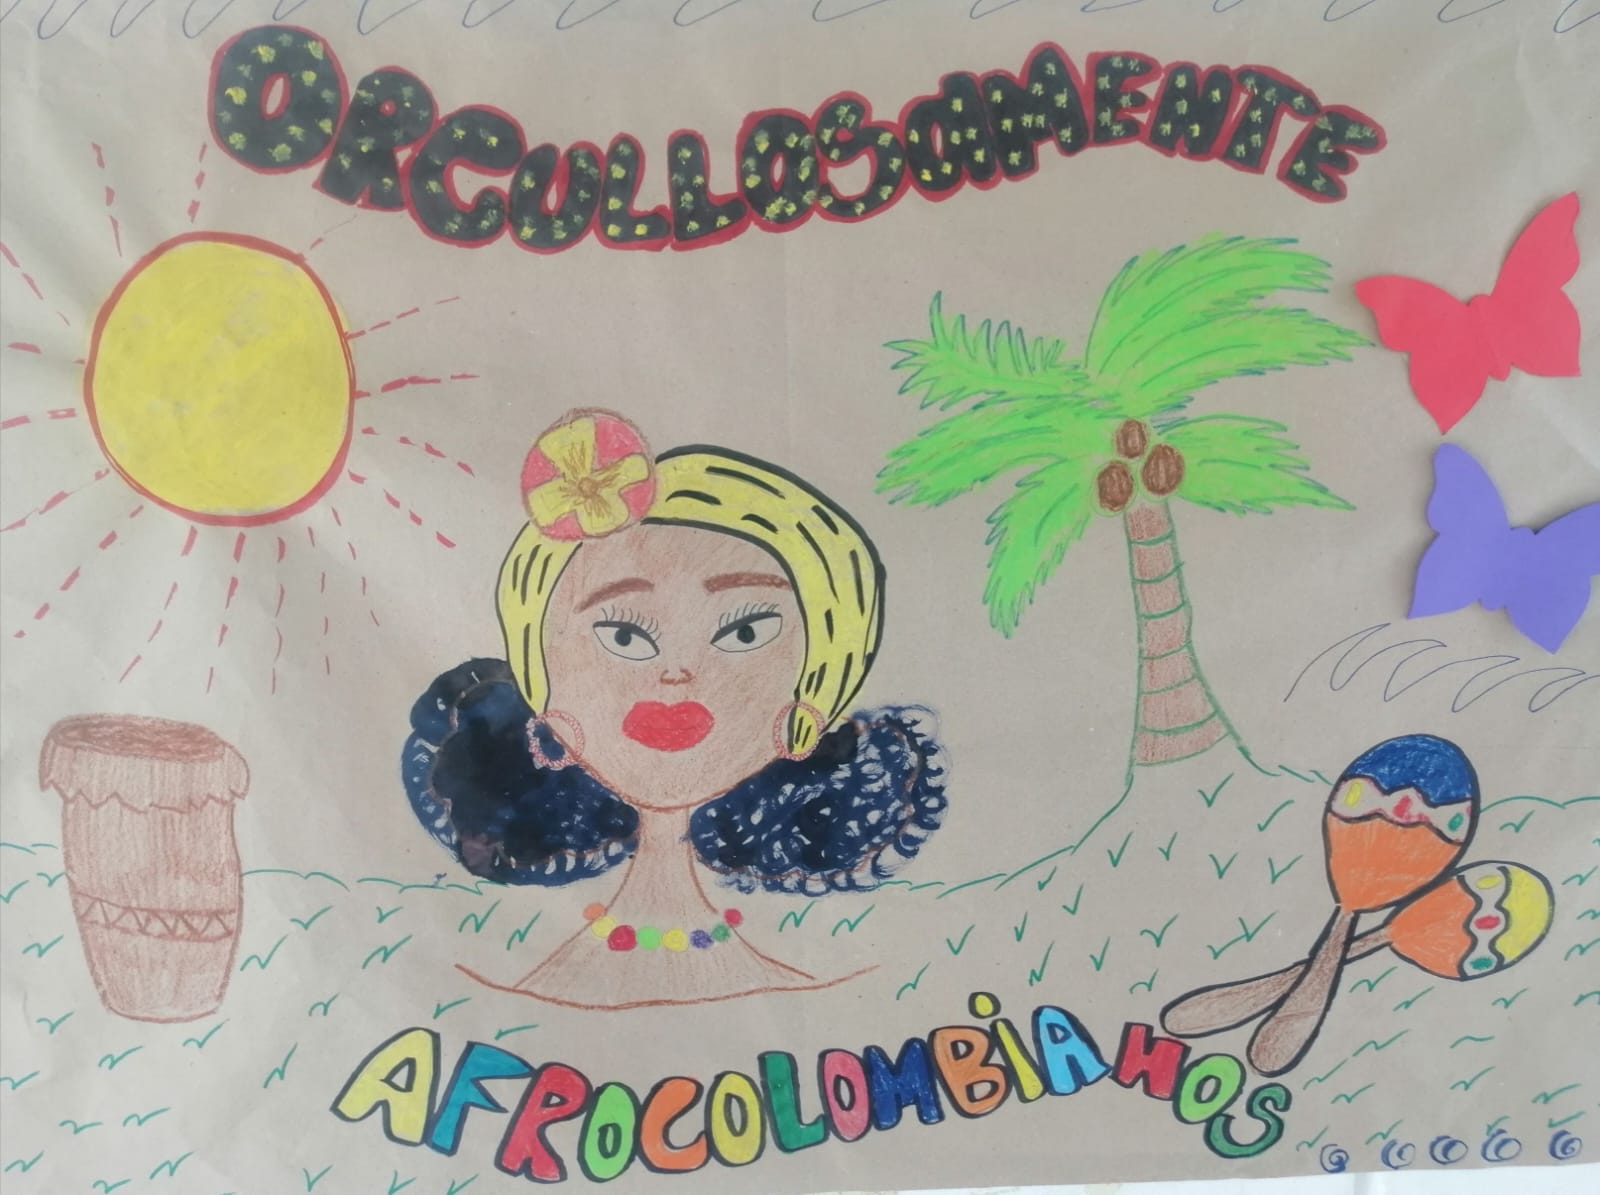 ORGULLOSAMENTE
AFROCOLOMBiANOS